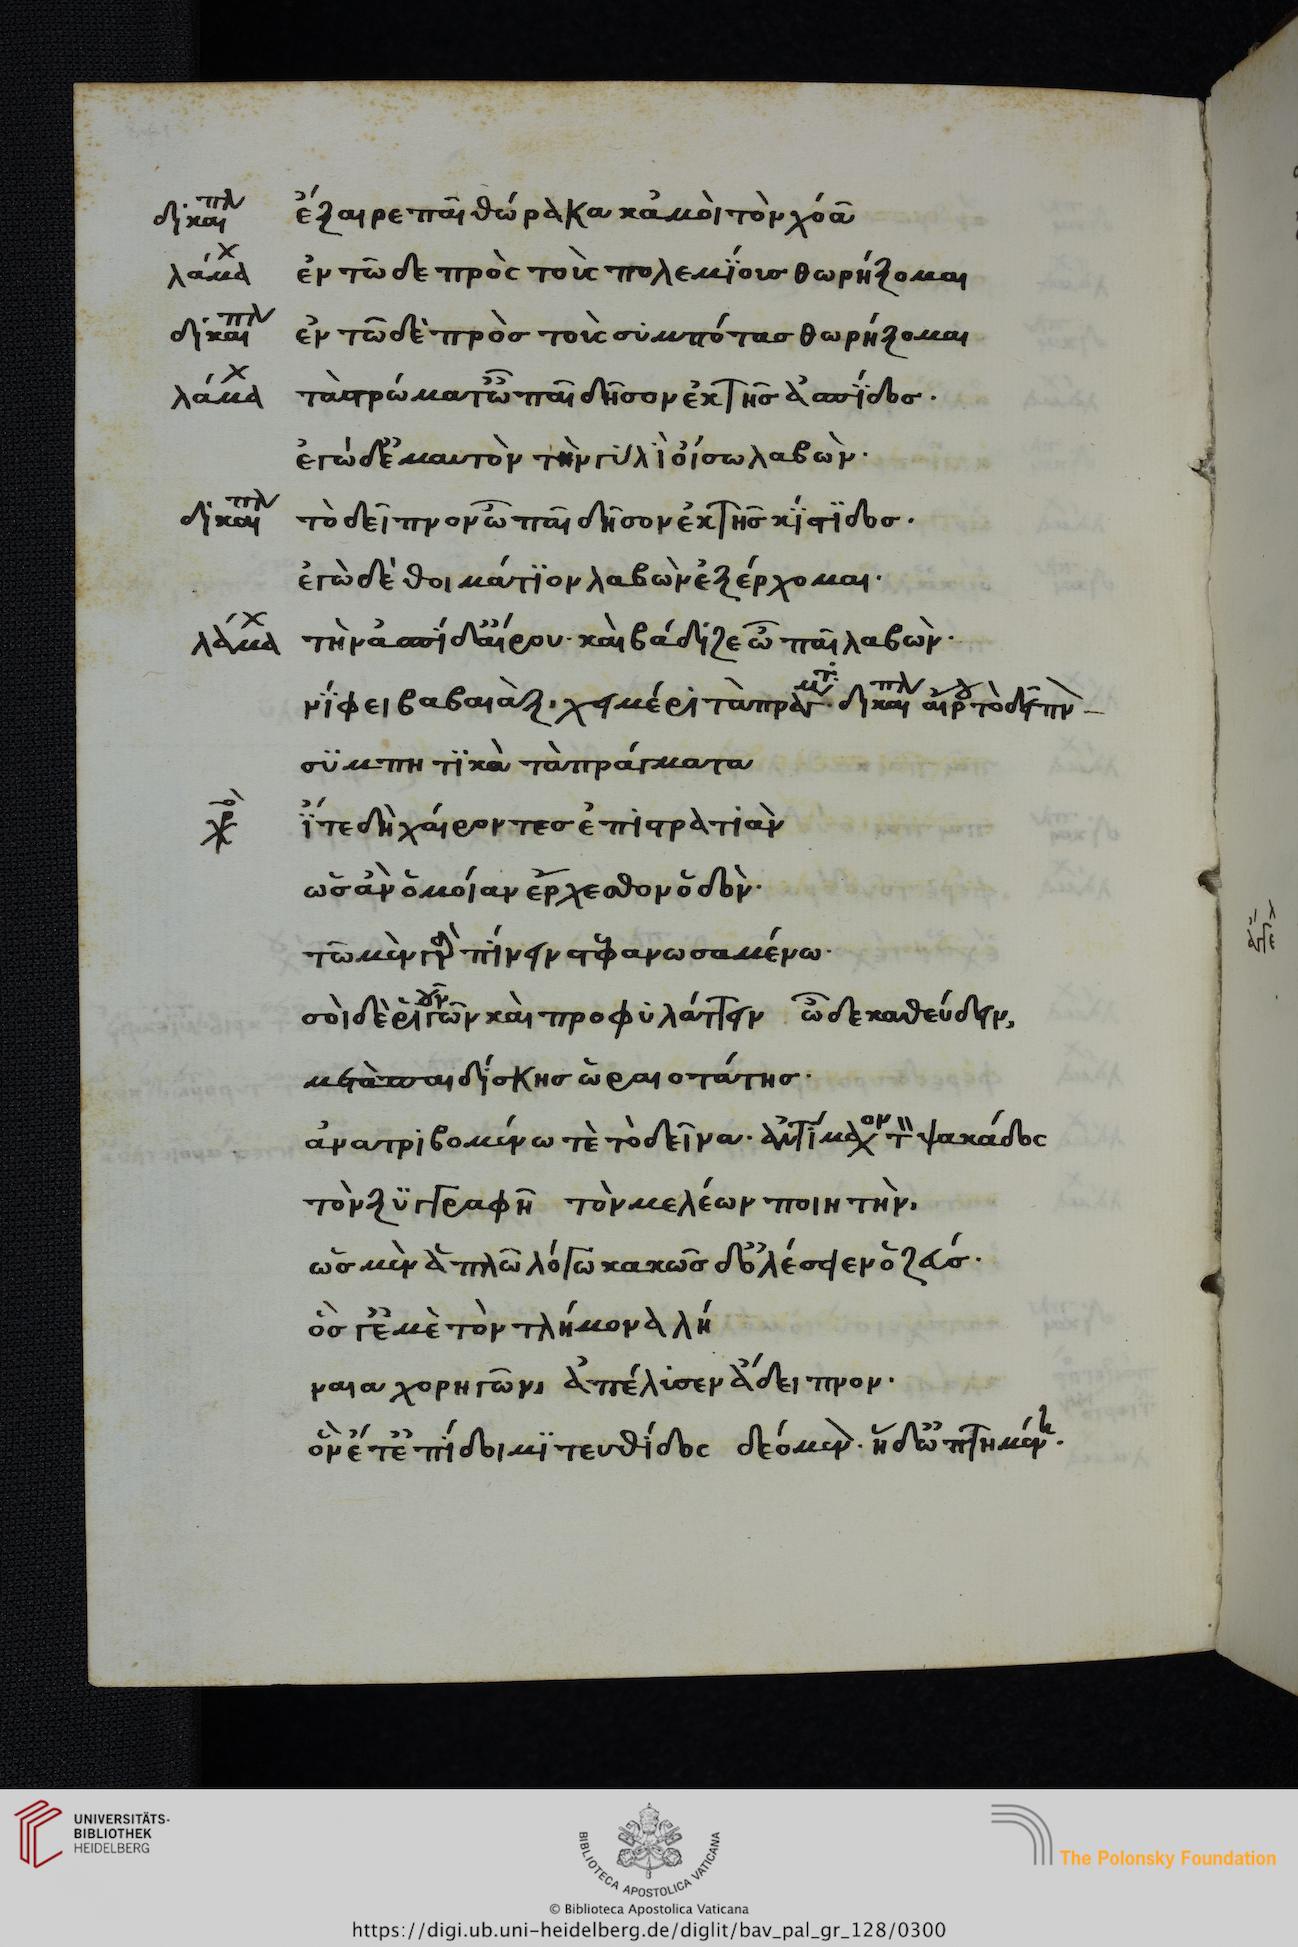 δικαι πλ ἔξαιρε παῖ θώρακα κἀμοὶ τὸν χόα
λάμα χ ἐν τῶδε πρὸς τοὺς πολεμίους θωρήξομαι
δικαι πλ ἐν τῶδὲ πρὸσ τοὺς συμπότασ θωρήξομαι
λάμα χ τὰ στρώματ ὦ παῖ δῆσον ἐκ τῆσ ἀσπίδοσ.
ἐγώ δ' ἐμαυτὸν τὴν γυλιὸ οἴσω λαβὼν.
δικαι πλ τὸ δεῖπνον ὦ παῖ δῆσον ἐκ τῆσ κιστίδοσ.
ἐγὼ δὲ θοιμάτιον λαβὼν ἐξέρχομαι.
λαμα χ τὴν ἀσπίδ αἴρου. καὶ βάδιζε ὦ παῖ λαβὼν.
νίφει βαβαιὰξ, χειμέρι τὰ πράγμτ. δικαι πλ αἴρου τὸ δεῖπν
συμπητικὰ τὰ πράγματα
χο ἴτε δὴ χαίροντεσ ἐπι στρατιὰν
ὡσ ἀν ὁμοίαν ἔρχεσθον ὁδὸν.
τῶ μὲν γὰρ πίνειν στεφανωσαμένω.
σοὶ δὲ ῥιγοῦν ῥιγῶν καὶ προφυλάττειν ὦδε καθεύδειν,
μετὰ παιδίσκησ ὡραιοτάτησ.
ἀνατριβομένω τὲ τὸ δεῖνα. ἀντίμαχον τ ψακάδος
τὸν ξυγγραφῆ τὸν μελέων ποιητὴν,
ὡσ μὲν ἁπλῶ λόγω κακῶσ ὀλέσειεν ὁ ζεύσ.
ὅσ γ' ἐμὲ τὸν τλήμονα λή
ναια χορηγῶν, ἀπέλυσεν ἄδειπνον.
ὃν ἔτ ἐπίδοιμι τευθίδος δεόμεν. ἡ δ' ὠπτημέν.
UNIVERSITÄTS-
BIBLIOTHEK
HEIDELBERG
BIBLIOTECA APOSTOLICA VATICANA
The Polonsky Foundation
© Biblioteca Apostolica Vaticana
https://digi.ub.uni-heidelberg.de/diglit/bav_pal_gr_128/0300